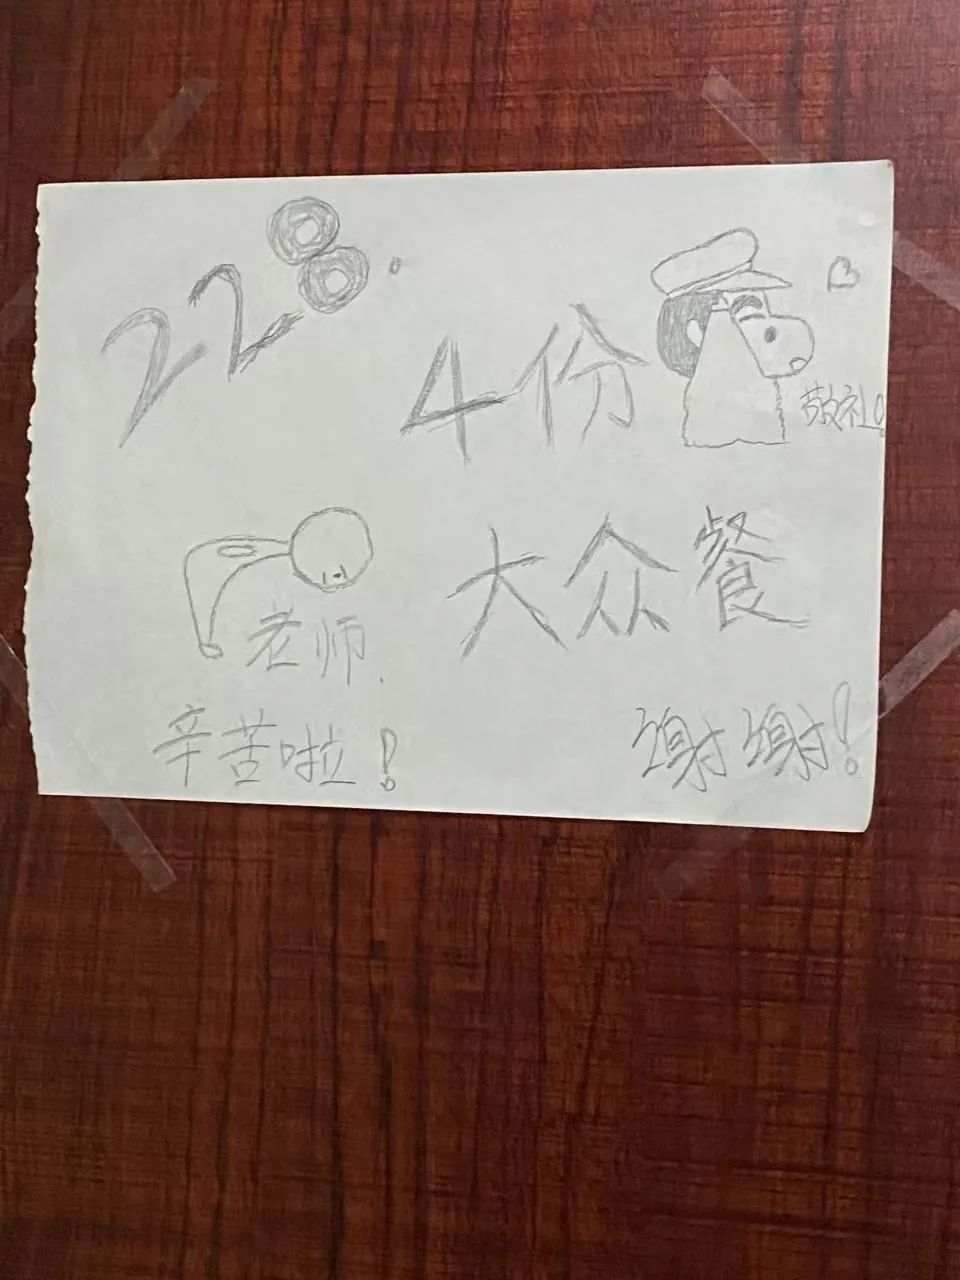 228.
4份
敬礼!
大众餐
老师.
辛苦啦!
谢谢!